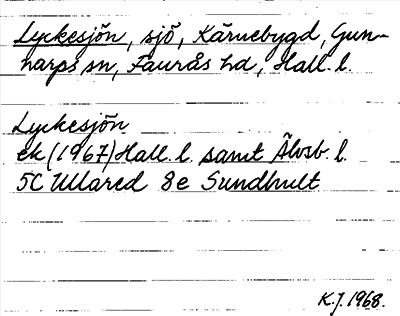 Lyckesjön, sjö, Kärnebygd, Gun-
narps sn, Faurås hd, Hall. l.
Lyckesjön
ek (1967) Hall. l. samt Älvsb. l.
5C Ullared 8e Sundhult
K.J. 1968.